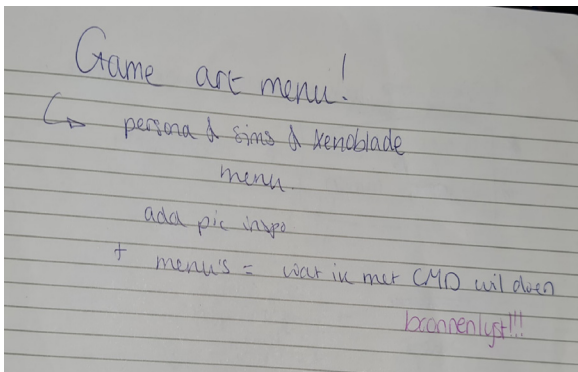 Game art menu!
↳ persona & sims & xenoblade
menu.
add pic inspo
+ menu's = wat ik met CMD wil doen
bronnenlijst!!!